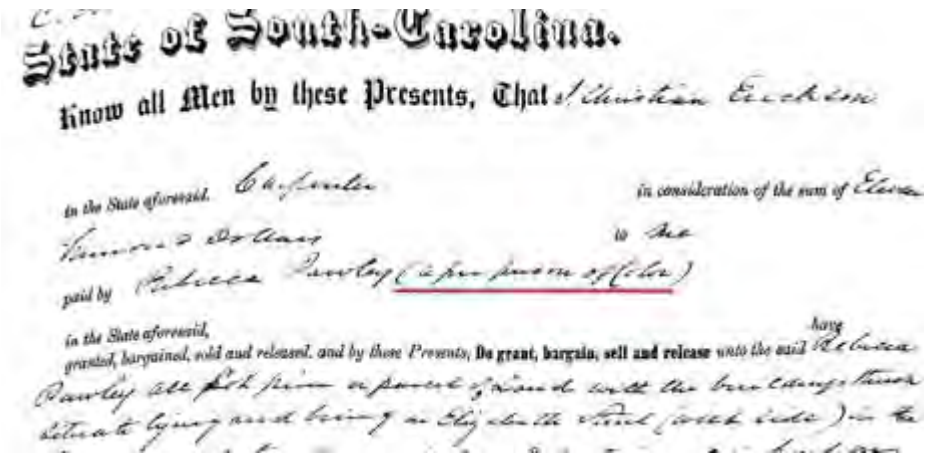 State of South-Carolina.
Know all Men by these Presents, That I Christian Erickson
in the State aforesaid, Carpenter in consideration of the sum of Eleven
Hundred Dollars to me
paid by Rebecca Pawley (a free person of Color)
in the State aforesaid, have
granted, bargained, sold and released, and by these Presents, Do grant, bargain, sell and release unto the said Rebecca
Pawley all that piece or parcel of Land with the buildings thereon
situate lying and being in Elizabeth Street (west side) in the